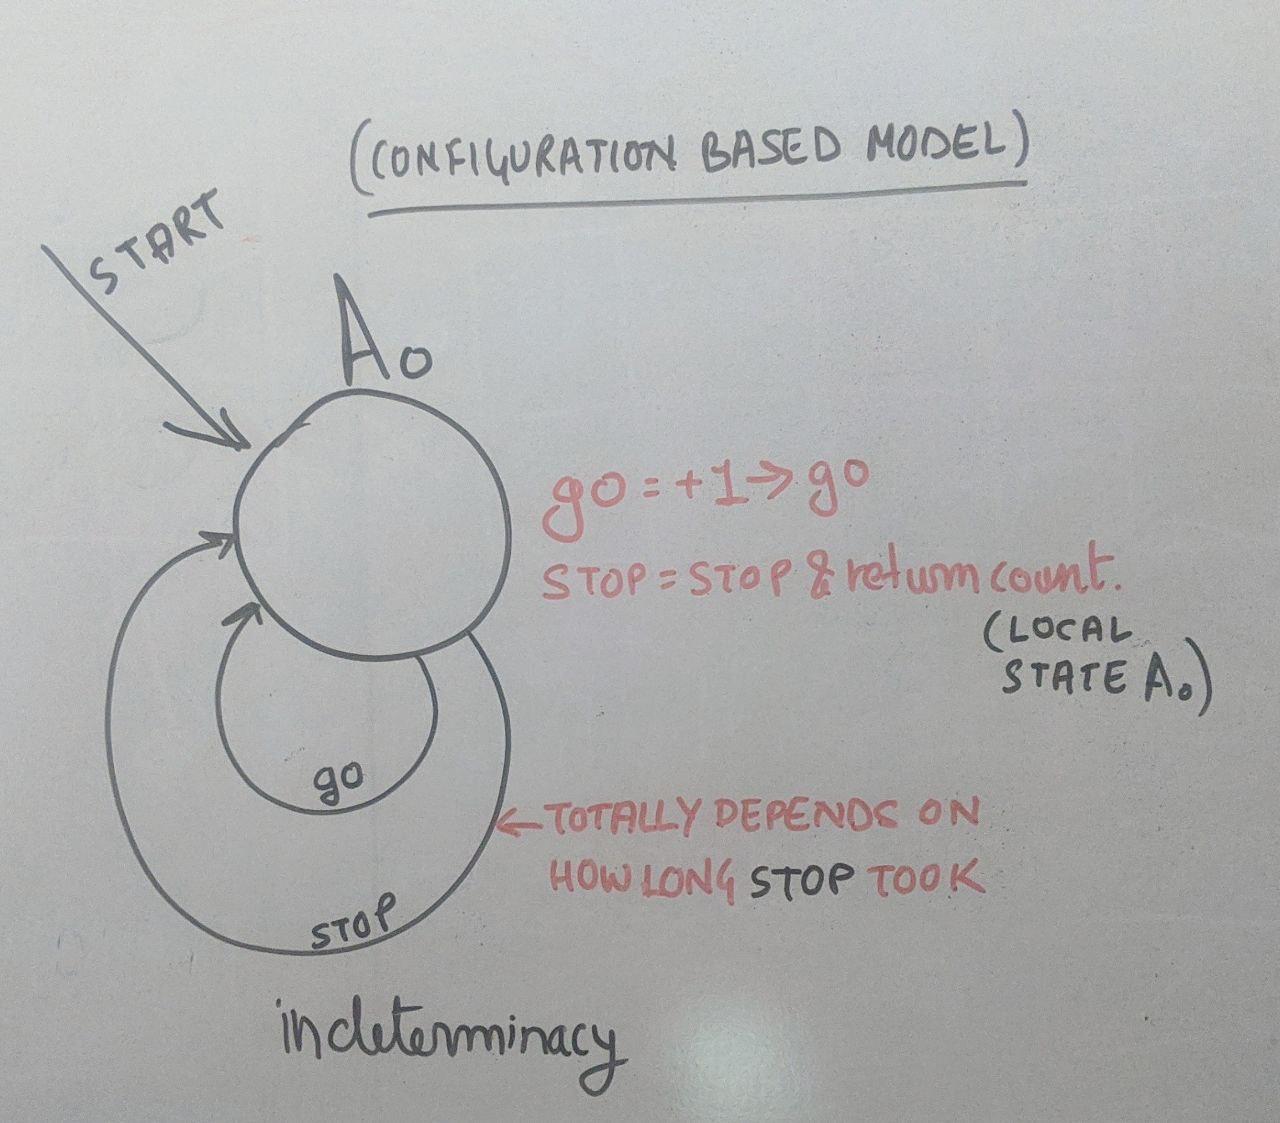 (CONFIGURATION BASED MODEL)
START
A₀
go = +1 → go
STOP = STOP & return count.
(LOCAL
STATE A₀)
go
← TOTALLY DEPENDS ON
HOW LONG STOP TOOK
STOP
indeterminacy